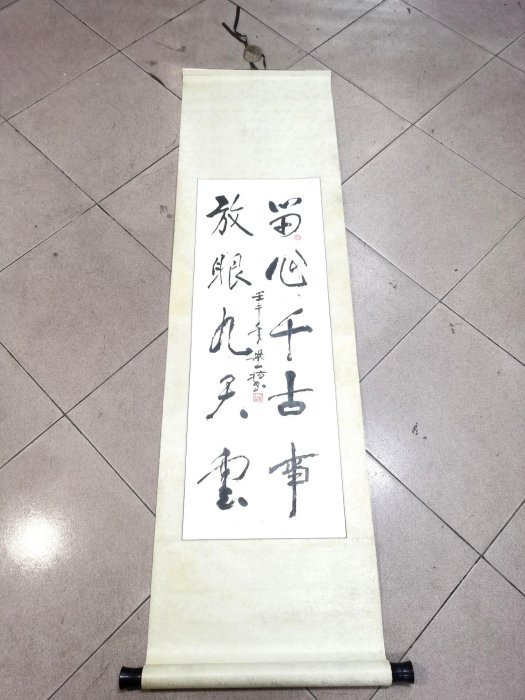 留心千古事
放眼九天雲
壬午年